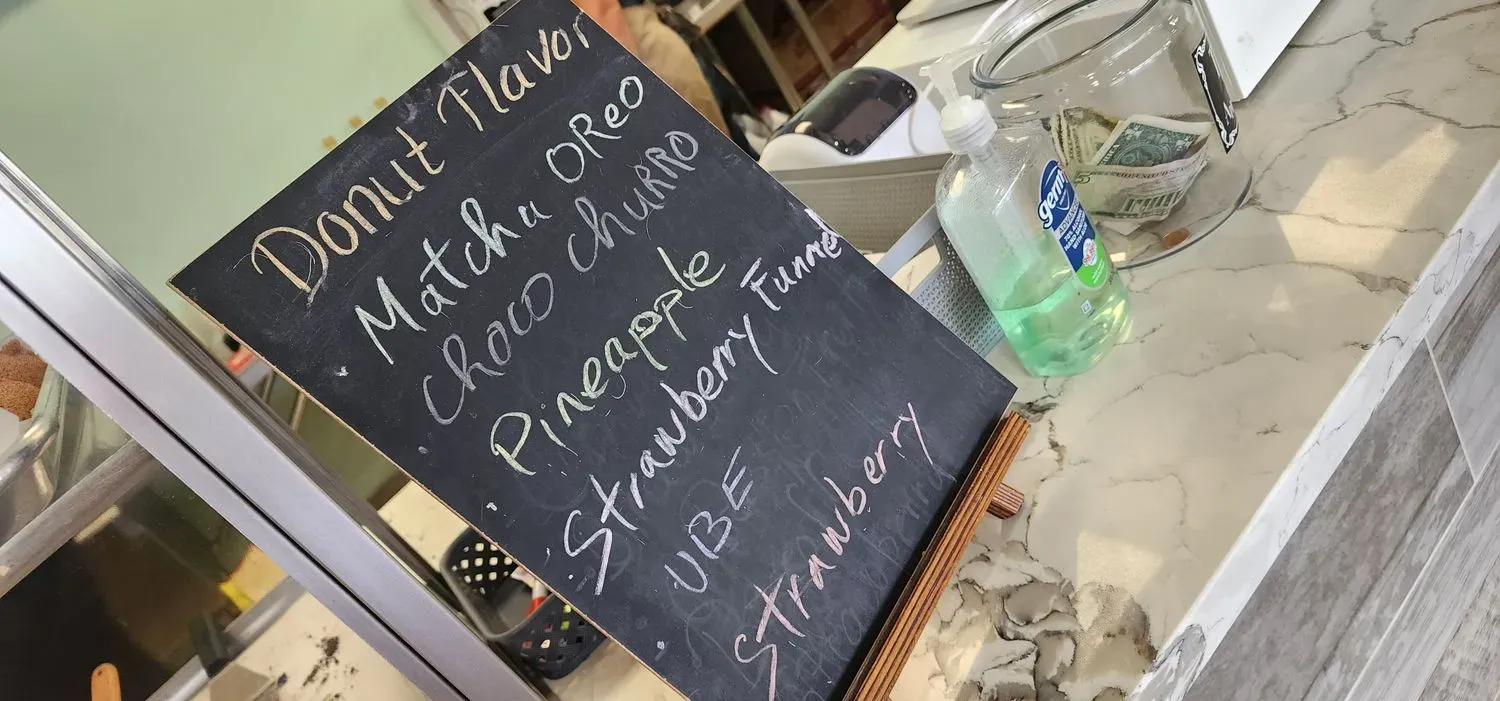 Donut Flavor
Matcha OReo
choco chuRRO
Pineapple
Strawberry Funnel
UBE
Strawberry
germ
ADVANCED
5